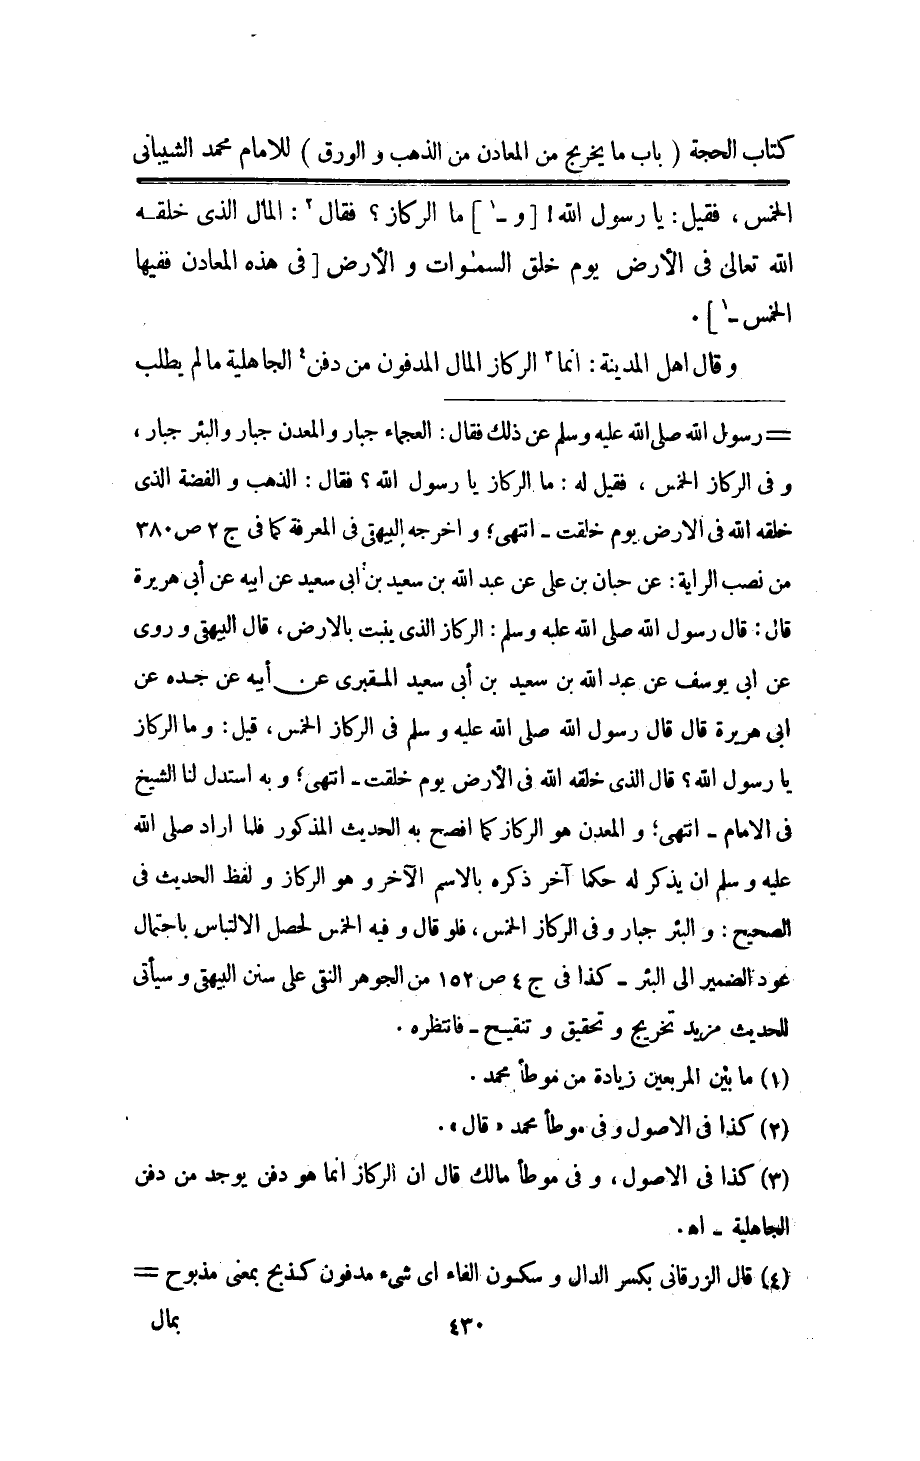 كتاب الحجة ( باب ما يخرج من المعادن من الذهب و الورق ) للامام محمد الشيبانى
الخمس ، فقيل : يا رسول الله ! [ و -١ ] ما الركاز ؟ فقال٢ : المال الذى خلقه
الله تعالى فى الأرض يوم خلق السمٰوات و الأرض [ فى هذه المعادن ففيها
الخمس -١ ] .
و قال اهل المدينة : انما٣ الركاز المال المدفون من دفن٤ الجاهلية ما لم يطلب
= رسول الله صلى الله عليه وسلم عن ذلك فقال : العجماء جبار والمعدن جبار والبئر جبار ،
و فى الركاز الخمس ، فقيل له : ما الركاز يا رسول الله ؟ فقال : الذهب و الفضة الذى
خلقه الله فى الارض يوم خلقت - انتهى ؛ و اخرجه البيهقى فى المعرفة كما فى ج ٢ ص ٣٨٠
من نصب الراية : عن حبان بن على عن عبد الله بن سعيد بن ابى سعيد عن ابيه عن أبى هريرة
قال : قال رسول الله صلى الله عليه وسلم : الركاز الذى ينبت بالارض ، قال البيهقى و روى
عن ابى يوسف عن عبد الله بن سعيد بن أبى سعيد المقبرى عن أبيه عن جده عن
ابى هريرة قال قال رسول الله صلى الله عليه و سلم فى الركاز الخمس ، قيل : و ما الركاز
يا رسول الله ؟ قال الذى خلقه الله فى الأرض يوم خلقت - انتهى ؛ و به استدل لنا الشيخ
فى الامام - انتهى ؛ و المعدن هو الركاز كما افصح به الحديث المذكور فلما اراد صلى الله
عليه و سلم ان يذكر له حكما آخر ذكره بالاسم الآخر و هو الركاز و لفظ الحديث فى
الصحيح : و البئر جبار و فى الركاز الخمس ، فلو قال و فيه الخمس لحصل الالتباس باحتمال
عود الضمير الى البئر - كذا فى ج ٤ ص ١٥٢ من الجوهر النقى على سنن البيهقى و سيأتى
للحديث مزيد تخريج و تحقيق و تنقيح - فانتظره .
(١) ما بين المربعين زيادة من موطأ محمد .
(٢) كذا فى الاصول و فى موطأ محمد « قال » .
(٣) كذا فى الاصول ، و فى موطأ مالك قال ان الركاز انما هو دفن يوجد من دفن
الجاهلية - اه .
(٤) قال الزرقانى بكسر الدال و سكون الفاء اى شىء مدفون كذبح بمعنى مذبوح =
بمال
٤٣٠